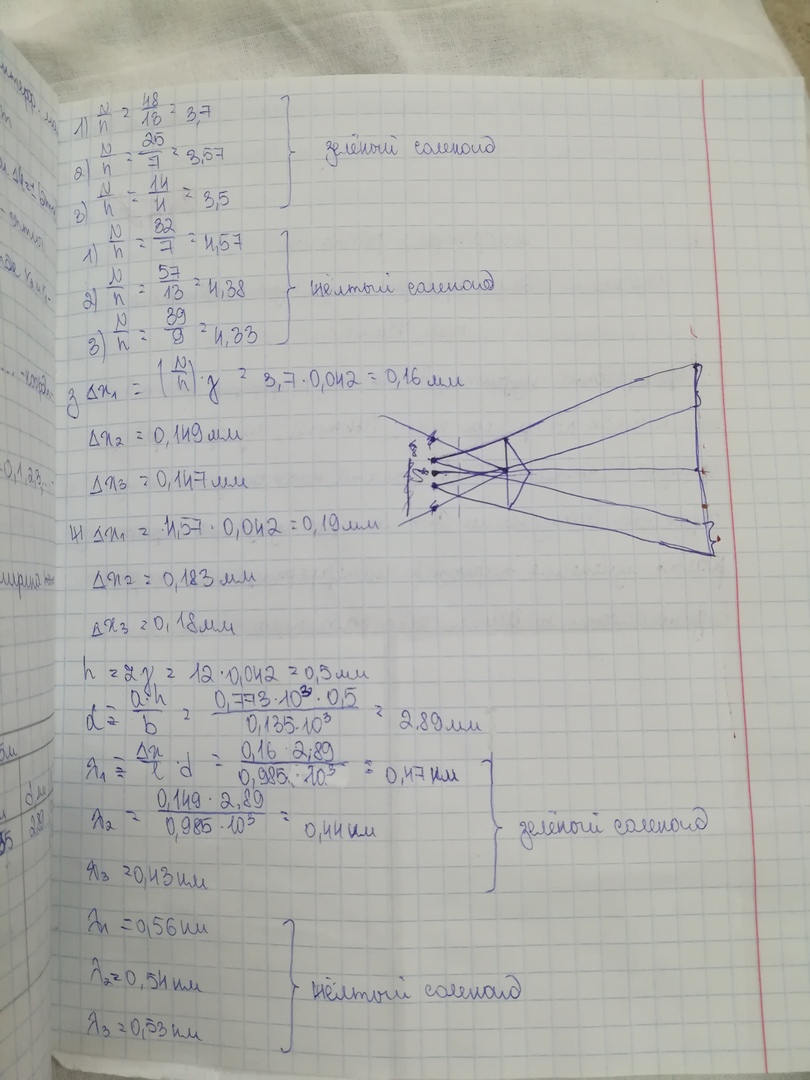 1) N/n = 48/13 = 3,7
2) N/n = 25/7 = 3,57
3) N/n = 14/4 = 3,5
зелёный соленоид
1) N/n = 32/7 = 4,57
2) N/n = 57/13 = 4,38
3) N/n = 39/9 = 4,33
жёлтый соленоид
з Δx₁ = (N/n)·γ = 3,7·0,042 = 0,16 мм
Δx₂ = 0,149мм
Δx₃ = 0,147мм
ж Δx₁ = 4,57·0,042 = 0,19мм
Δx₂ = 0,183 мм
Δx₃ = 0,18мм
h = zγ = 12·0,042 = 0,5 мм
d = a·h/b = 0,773·10³·0,5/0,135·10³ = 2,89 мм
λ₁ = Δx/l · d = 0,16·2,89/0,985·10³ = 0,47 нм
λ₂ = 0,149·2,89/0,985·10³ = 0,44 нм
λ₃ = 0,43 нм
зелёный соленоид
λ₁ = 0,56 нм
λ₂ = 0,54 нм
λ₃ = 0,53 нм
жёлтый соленоид